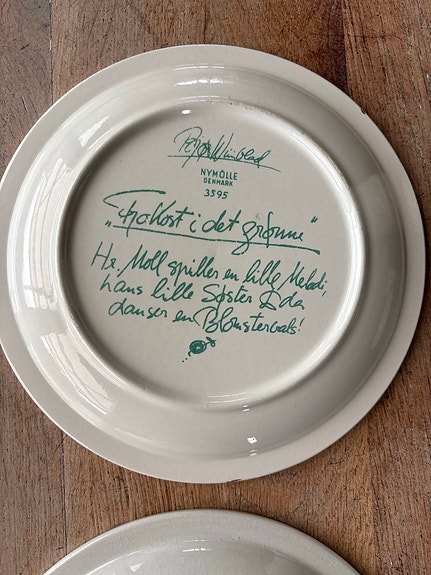 Bjørn Wiinblad
NYMÖLLE
DENMARK
3595
"Frokost i det grønne"
Hr. Moll spiller en lille Melodi,
hans lille Søster Ida
danser en Blomstervals!